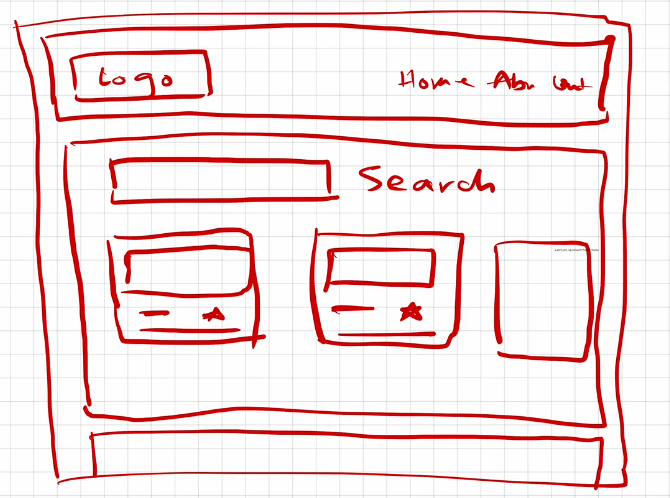 Logo
Home Abn
Search